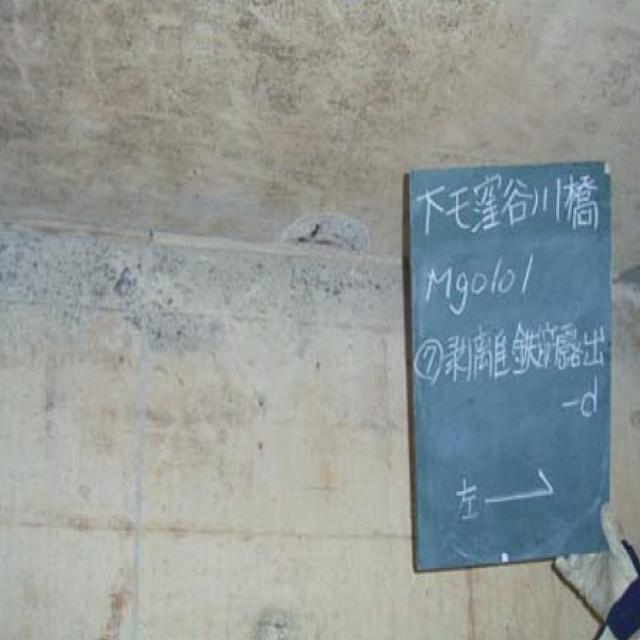 下毛窪谷川橋
Mg0101
⑦剥離鉄筋露出
-d
左→